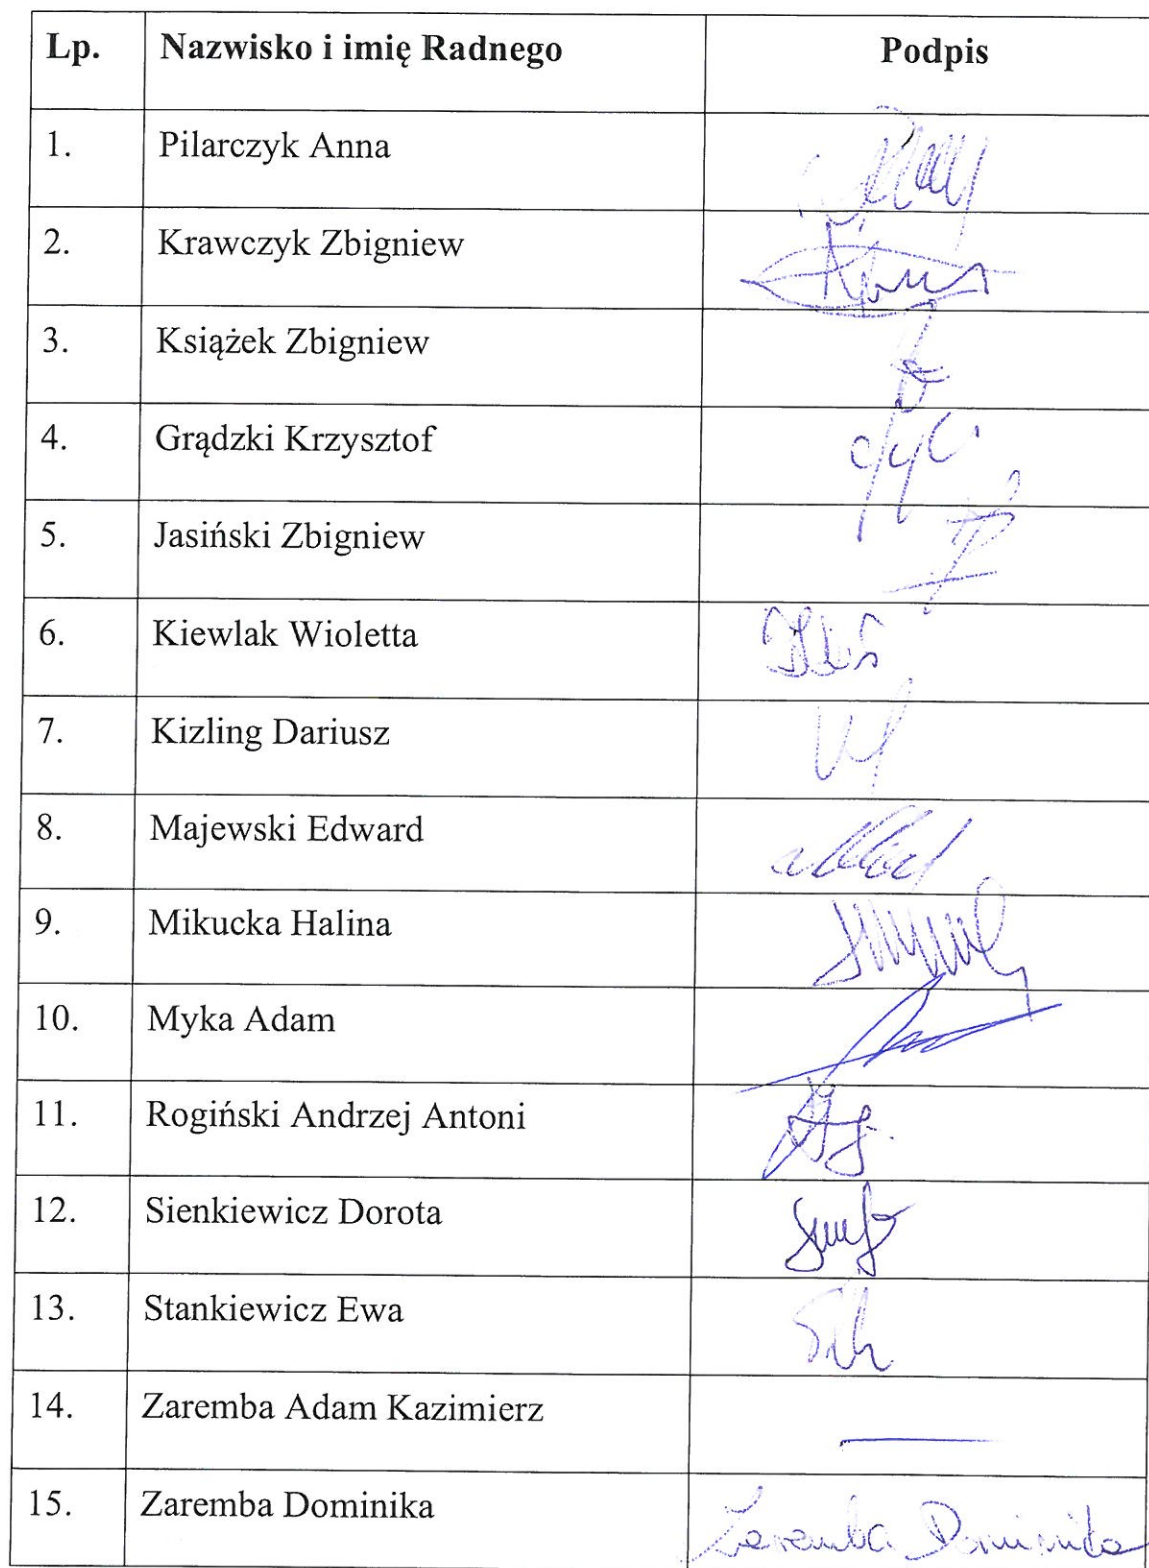 Lp. Nazwisko i imię Radnego Podpis
1. Pilarczyk Anna
2. Krawczyk Zbigniew
3. Książek Zbigniew
4. Grądzki Krzysztof
5. Jasiński Zbigniew
6. Kiewlak Wioletta
7. Kizling Dariusz
8. Majewski Edward
9. Mikucka Halina
10. Myka Adam
11. Rogiński Andrzej Antoni
12. Sienkiewicz Dorota
13. Stankiewicz Ewa
14. Zaremba Adam Kazimierz
15. Zaremba Dominika Zaremba Dominika